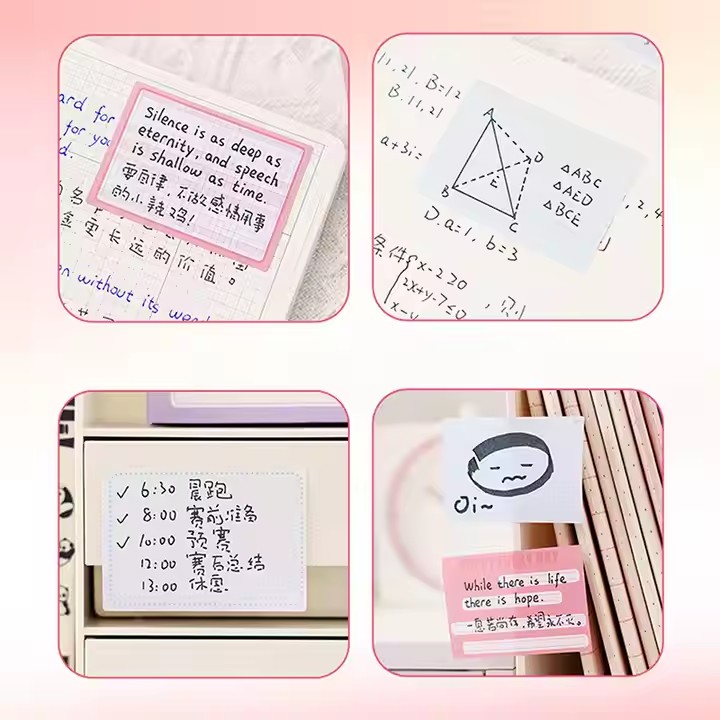 ard for
for you
d.
Silence is as deep as
eternity, and speech
is shallow as time.
要自律，不做感情用事
的小辣鸡！
更长远的价值。
en without its
11,21, B=12
B.11,21
a+3i=
A
D
B
E
C
△ABC
△AED
△BCE
, 2, 4
D.a=1, b=3
条件
x-2≥0
2x+y-7≤0
x-y
✓ 6:30 晨跑
✓ 8:00 赛前准备
✓ 10:00 预赛
12:00 赛后总结
13:00 休息
Oi~
While there is life
there is hope.
一息若尚存，希望永不灭。